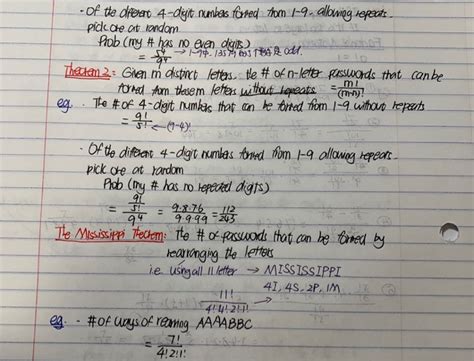 - Of the different 4-digit numbers formed from 1-9, allowing repeats.
pick one at random
Prob (my # has no even digits)
= 5⁴/9⁴ → 1-9中, 13579
Theorem 2: Given m distinct letters, the # of n-letter passwords that can be
formed from these m letters without repeats = m!/(m-n)!
eg. - The # of 4-digit numbers that can be formed from 1-9 without repeats
= 9!/5! ← (9-4)!
- Of the different 4-digit numbers formed from 1-9 allowing repeats.
pick one at random
Prob (my # has no repeated digits)
= (9!/5!)/9⁴ = 9·8·7·6/9·9·9·9 = 112/243
The Mississippi Theorem: The # of passwords that can be formed by
rearranging the letters
i.e. using all 11 letter → MISSISSIPPI
4I, 4S, 2P, 1M
11!/4!·4!·2!·1!
eg. - # of ways of AAAABBC
= 7!/4!2!1!